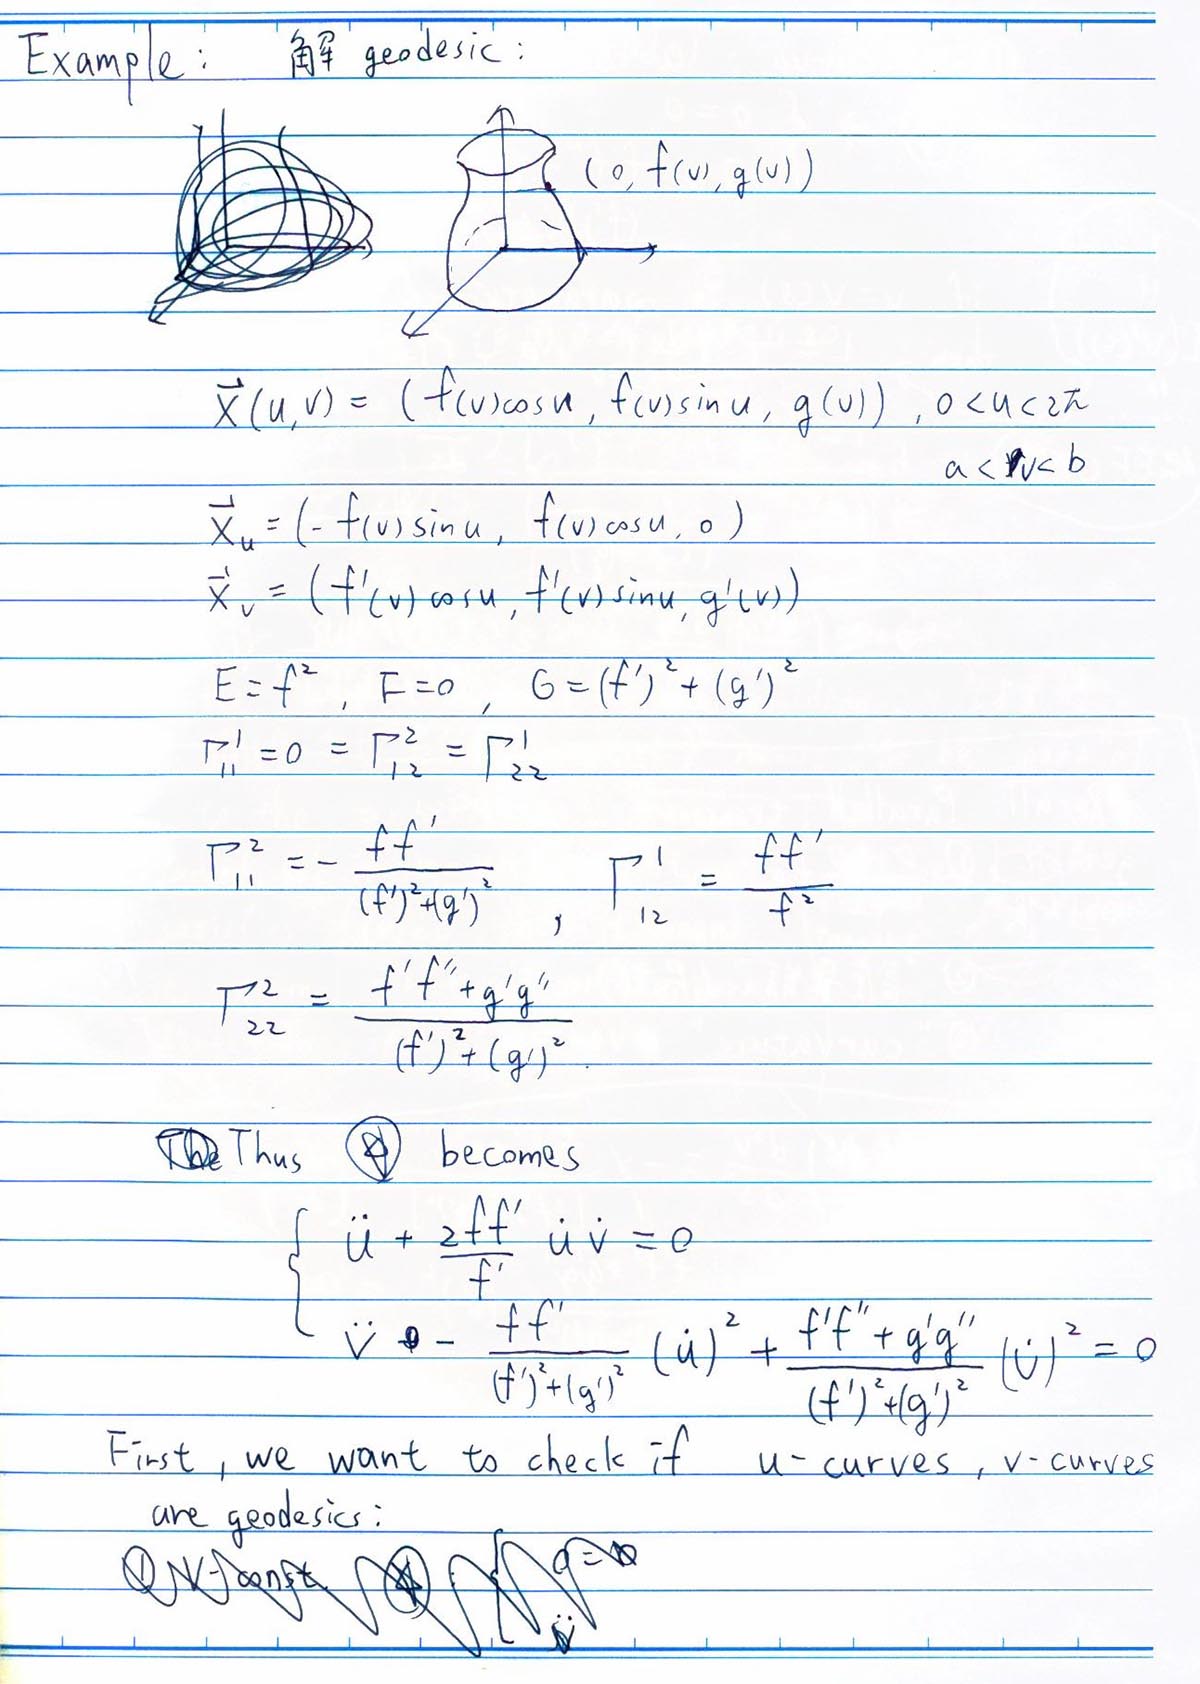 Example: 解 geodesic:
(0, f(v), g(v))
X⃗(u,v) = (f(v)cosu, f(v)sinu, g(v)), 0<u<2π
a<v<b
X⃗ᵤ = (-f(v)sinu, f(v)cosu, 0)
X⃗ᵥ = (f'(v)cosu, f'(v)sinu, g'(v))
E = f², F=0, G = (f')² + (g')²
Γ₁₁¹ = 0 = Γ₁₂² = Γ₂₂¹
Γ₁₁² = - ff' / ((f')²+(g')²), Γ₁₂¹ = ff' / f²
Γ₂₂² = (f'f''+g'g'') / ((f')²+(g')²).
Thus ⊛ becomes
{ ü + (2ff' / f') u̇ v̇ = 0
v̈ - (ff' / ((f')²+(g')²)) (u̇)² + ((f'f''+g'g'') / ((f')²+(g')²)) (v̇)² = 0
First, we want to check if u-curves, v-curves
are geodesics: